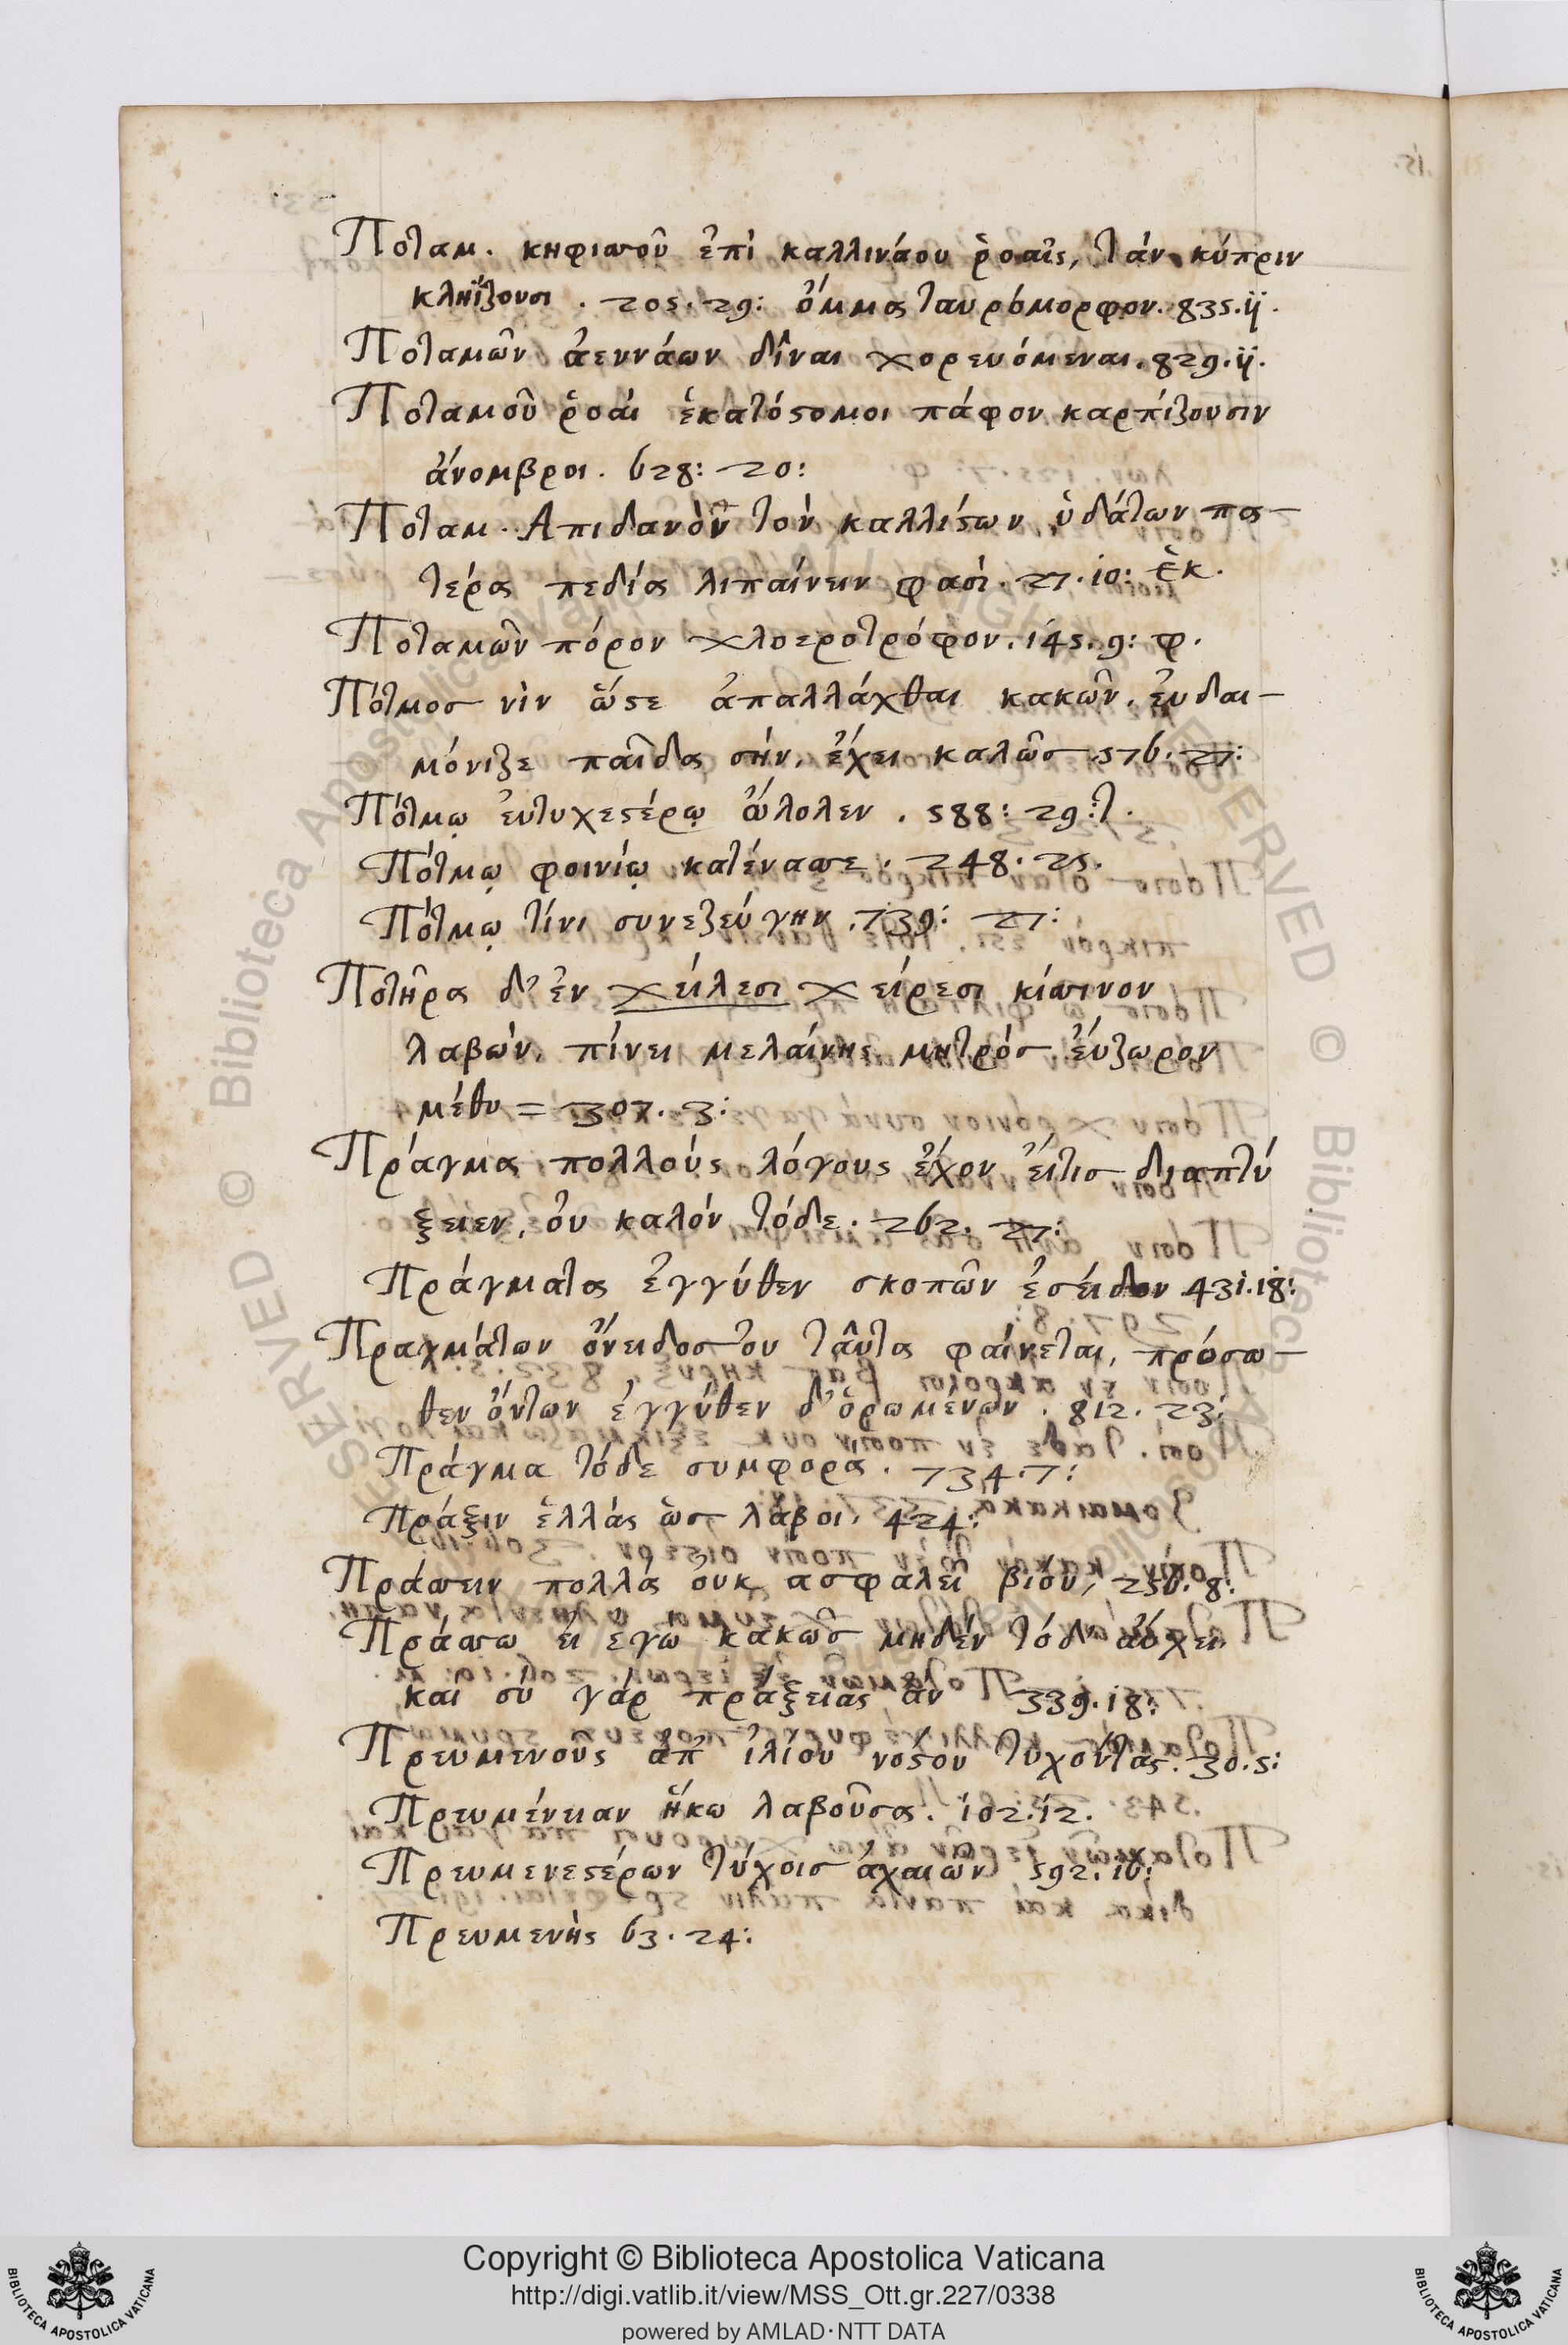 Ποταμ. κηφισσοῦ ἐπὶ καλλινάου ῥοαῖς, τὰν κύπριν
κληΐζουσι . 205. 29: ὄμμα ταυρόμορφον. 835. ij.
Ποταμῶν ἀεννάων δῖναι χορευόμεναι. 829. ij.
Ποταμοῦ ῥοαὶ ἑκατόστομοι πάφον καρπίζουσιν
ἄνομβροι. 628: 20:
Ποταμ. Απιδανὸν τὸν καλλίστων ὑδάτων πα-
τέρα πεδία λιπαίνειν φασὶ. 27. 10: ἑκ.
Ποταμῶν πόρον χλοεροτρόφον. 145. 9: φ.
Πότμος νὶν ὥστε ἀπαλλάχθαι κακῶν. ἐυδαι-
μόνιζε παῖδα σὴν. ἔχει καλῶς 576. 27:
Πότμῳ ἐυτυχεστέρῳ ὤλολεν . 588: 29: τ.
Πότμῳ φοινίῳ κατένασσε. 248. 25.
Πότμῳ τίνι συνεζεύγην. 739: 27:
Ποτῆρα δ' ἐν χείλεσι χείρεσι κίσσινον
λαβὼν. πίνει μελαίνης μητρὸς ἔυζωρον
μέθυ = 307. 3:
Πράγμα πολλοὺς λόγους ἔχον ἔιτις διαπτύ
ξειεν, ὀυ καλὸν τόδε. 262. 27:
Πράγματα ἐγγύθεν σκοπῶν ἐσεῖδον 431. 18:
Πραγμάτων ὄνειδος ὀυ τᾶυτα φαίνεται, πρόσω-
θεν ὄντων ἐγγύθεν δ' ὁρωμένων . 812. 23:
Πράγμα τόδε συμφορά. 734. 7:
Πράξιν ἑλλὰς ὡς λάβοι. 424:
Πράσσειν πολλὰ ὀυκ ασφαλεῖ βίου, 250. 8:
Πράσσω ἐι εγὼ κακῶς μηδὲν τόδ' ἄυχει
καὶ σὺ γὰρ πράξειας ἂν 339. 18:
Πρευμενοῦς ἀπ' ἰλίου νόστου τυχόντας. 30. 5:
Πρευμένειαν ἥκω λαβοῦσα. 102. 12.
Πρευμενεστέρων τύχοις ἀχαιῶν 592. 10:
Πρευμενὴς 63. 24:
Copyright © Biblioteca Apostolica Vaticana
http://digi.vatlib.it/view/MSS_Ott.gr.227/0338
powered by AMLAD·NTT DATA